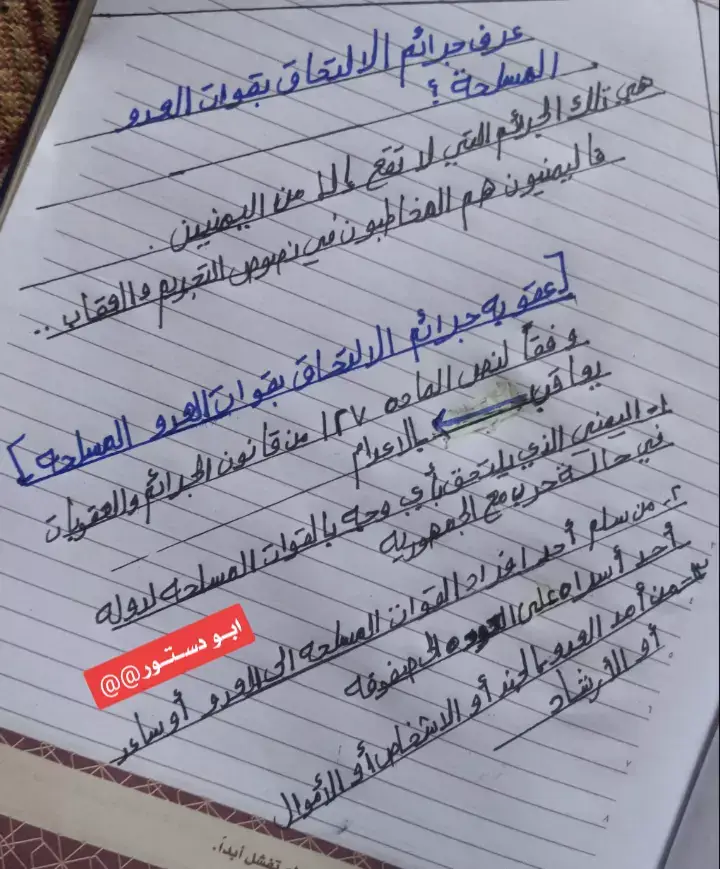 عرف جرائم الالتحاق بقوات العدو
المسلحة ؟
هي تلك الجرائم التي لا تقع إلا من اليمنيين .
فاليمنيون هم المخاطبون في نصوص التجريم والعقاب ..
[عقوبة جرائم الالتحاق بقوات العدو المسلحة]
وفقاً لنص الماده ١٢٧ من قانون الجرائم والعقوبات
يعاقب بالاعدام
١- اليمني الذي يلتحق بأي وجه بالقوات المسلحة لدوله
في حالة حرب مع الجمهورية
٢- من سلم أحد افراد القوات المسلحة الى العدو أو ساعد
أحد أسراه على العوده الى صفوفه
٣- من أمد العدو بالجند أو الاشخاص أو الأموال
أو الأرشاد
ابو دستور@@
تفشل أبداً.